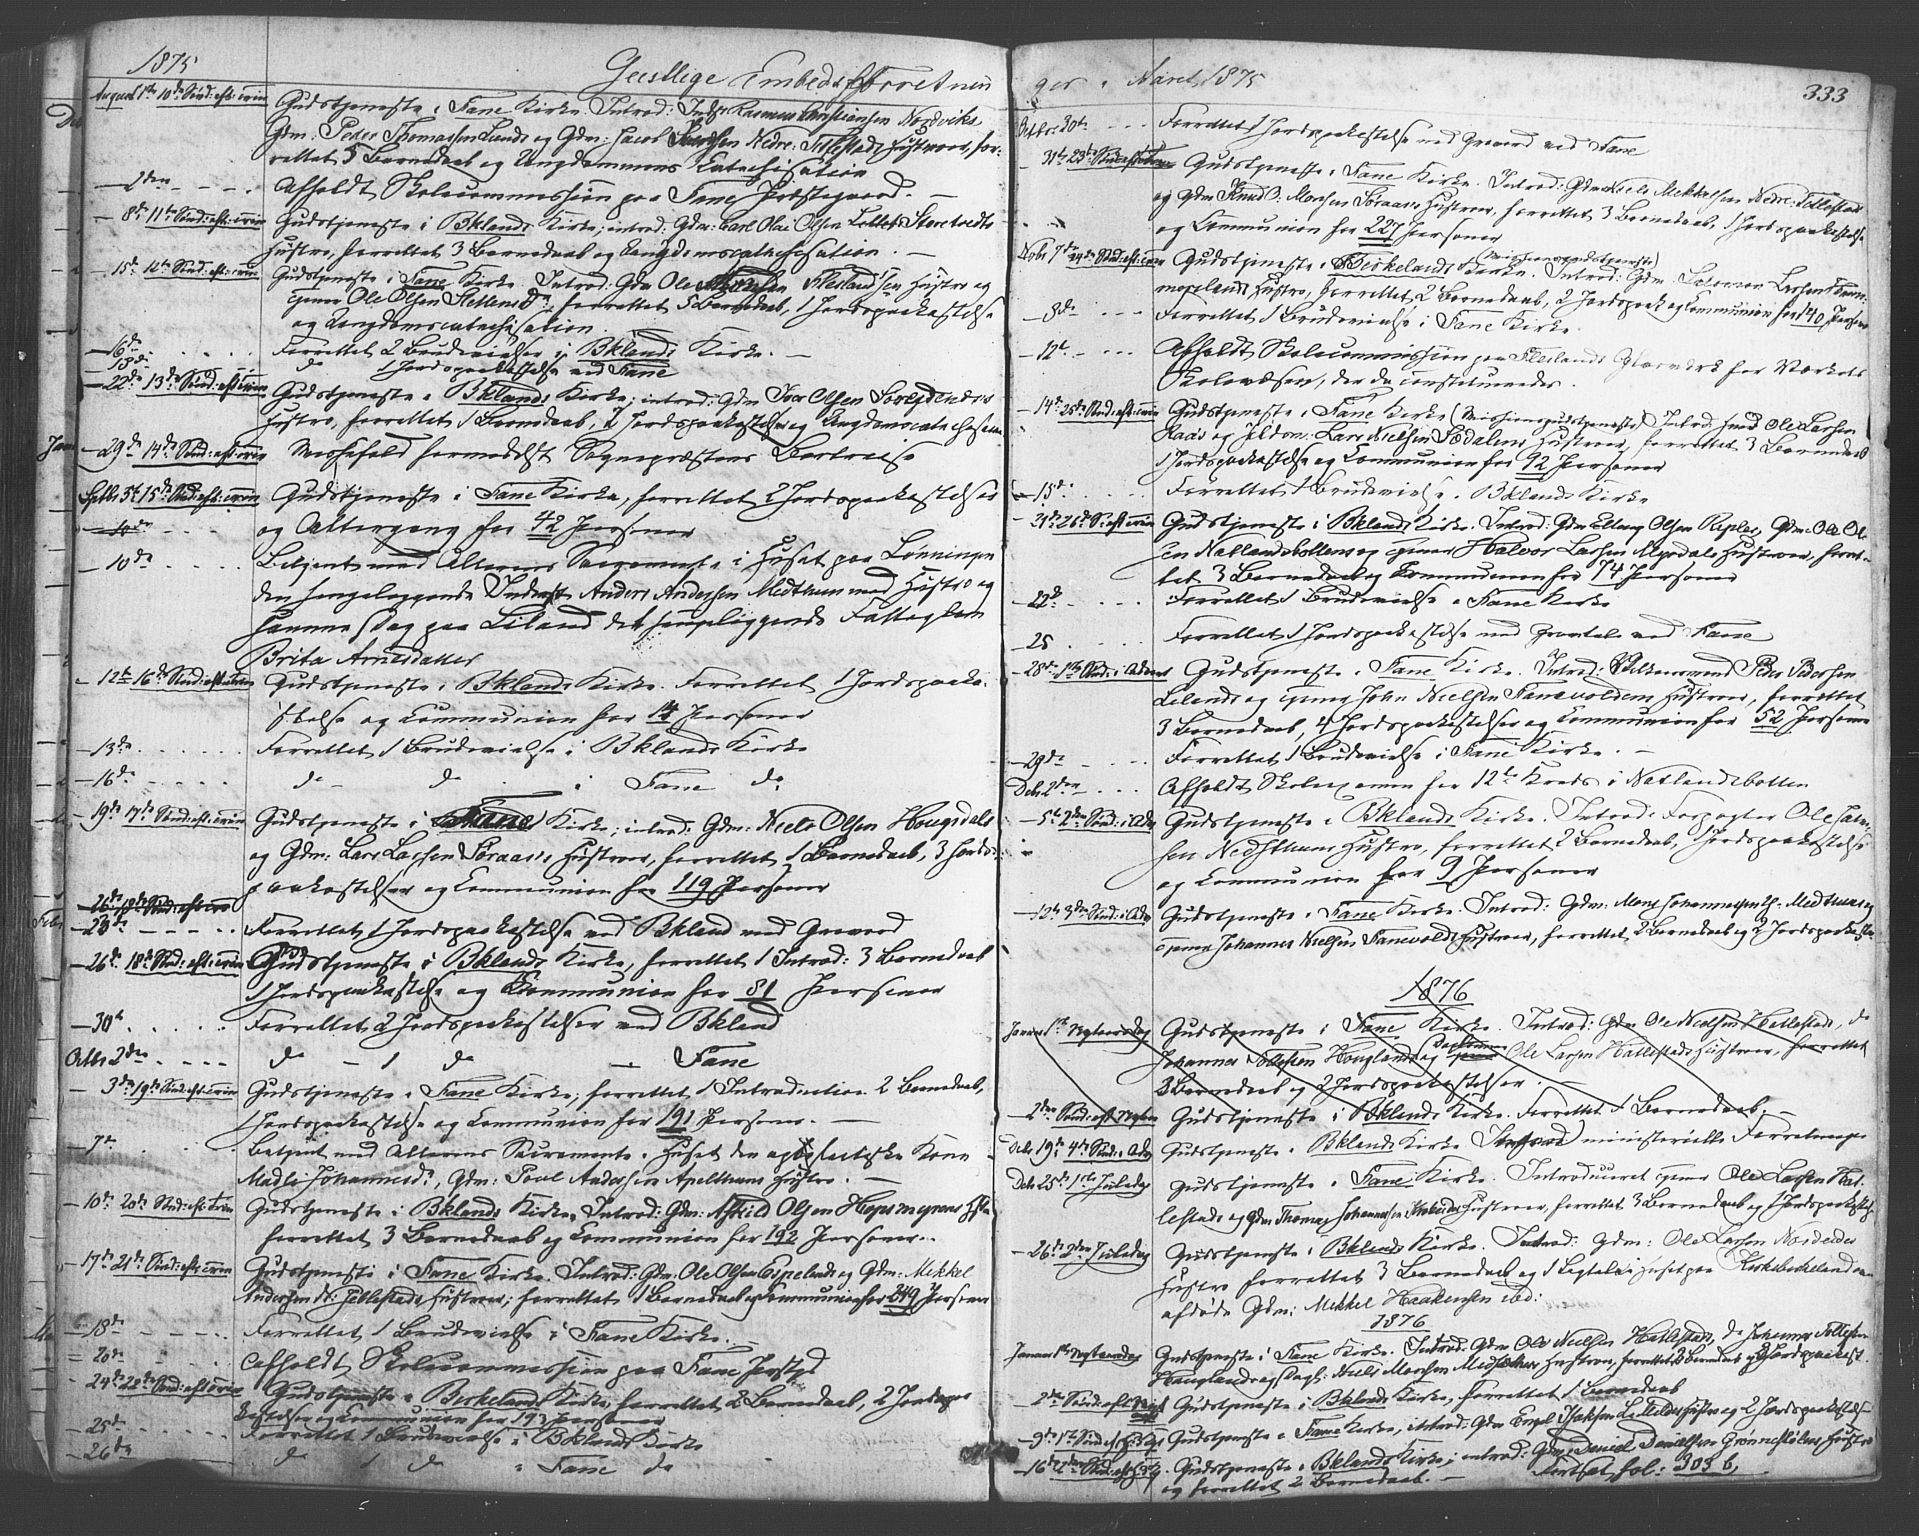 1875
Geistlige Embedsforretnin
August 1ste 10de Sønd: eft: trin Gudstjeneste i Fane Kirke. Introd: Inds: Rasmus Christiansen Nordviks
Gdm: Peder Thomassen Lunds og Gdm: Jacob Nedre: Titlestads Hustruer, for-
rettet 5 Barnedaab og Ungdommens Catechisation
- 2den - - - Afholdt Skolecommission paa Fane Præstegaard. -
- 8de 11te Sønd: eft: trin Gudstjeneste i Bklands Kirke, introd: Gdm: Carl Olai Olsen Storetvedts
Hustro, forrettet 3 Barnedaab og Ungdomscatechisation. -
- 15de 12te Sønd: eft: trin Gudstjeneste i Fane Kirke Introd: Gdm Ole Hustro og
Ole Olsen forrettet 5 Barnedaab, 1 Jordspaakastelse
og Ungdomscatechisation.
- 16de Forrettet 2 Brudevielser i Bklands Kirke. -
do 1 Jordspaakastelse ved Fane
- 22de 13de Sønd: eft: trin Gudstjeneste i Bklands Kirke; introd: Gdm Ivar Olsen
Hustro, forrettet 1 Barnedaab, 2 Jordspaakastelser og Ungdomscatechisation
- 29de 14de Sønd: eft: trin Messefald formedelst Sognepræstens Bortreise
Septbr 5te 15de Sønd: eft: trin Gudstjeneste i Fane Kirke, forrettet 2 Jordspaakastelser
og Altergang for 42 Personer
- 10de Betjent med Alterens Sacramente i Huset paa Lønningen
den sengeliggende Inderst Anders Andersen Midthun med Hustro og
samme Dag paa Liland det sengeliggende Fattiglem
Brita Arnesdatter
- 12te 16de Sønd: eft: trin Gudstjeneste i Bklands Kirke. Forrettet 1 Jordspaaka-
stelse og Communion for 14 Personer
- 13de Forrettet 1 Brudevielse i Bklands Kirke
- 16de do do i Fane do
- 19de 17de Sønd: eft: trin Gudstjeneste i Fane Kirke; introd: Gdm: Niels Olsen Hougsdals
og Gdm: Lars Larsen Søraas's Hustruer, forrettet 1 Barnedaab, 3 Jords-
paakastelser og Communion for 119 Personer
- 26de 18de Sønd: eft: trin
- 23de Forrettet 1 Jordspaakastelse ved Bkland med Graverd
- 26de 18de Sønd: eft: trin Gudstjeneste i Bklands Kirke, forrettet 1 Introd: 3 Barnedaab
1 Jordspaakastelse og Communion for 81 Personer
- 30te Forrettet 2 Jordspaakastelser ved Bkland
Octbr 2den do - 1 do - Fane
- 3de 19de Sønd: eft: trin Gudstjeneste i Fane Kirke, forrettet 1 Introduction 2 Barnedaab,
1 Jordspaakastelse og Communion for 191 Personer. -
- 7de Betjent med Alterens Sacramente i Huset den Kone
Madli Johannesd:, Gdm: Poul Andersen Apeltuns Hustro. -
- 10de 20de Sønd: eft: trin Gudstjeneste i Bklands Kirke, Introd: Gdm: Olsen Hopsmyrens Hstr
forrettet 3 Barnedaab og Communion for 192 Personer.
- 17de 21de Sønd: eft: trin Gudstjeneste i Fane Kirke. Introd: Gdm: Ole Olsen Espelands og Gdm: Mikkel
Andersen Hustruer; forrettet 1 Barnedaab og Communion for 249 Personer
- 18de Forrettet 1 Brudevielse i Fane Kirke. -
- 20de Afholdt Skolecommission paa Fane Prstgd
- 24de 22de Sønd: eft: trin Gudstjeneste i Birkelands Kirke, forrettet 2 Barnedaab, 2 Jordspaa-
kastelser og Communion for 193 Personer
- 25de Forrettet 1 Brudevielse i Bklands Kirke
- 26de do 1 do i Fane do
ger i Aaret 1875
333
Octbr: 30te Forrettet 1 Jordspaakastelse med Graverd ved Fane
- 31te 23de Sønd: eft: trin Gudstjeneste i Fane Kirke. Introd: Gdm Niels Mikkelsen Nedre-Titlestad
og Gdm Knud Monsen Søraas's Hustruer, forrettet 3 Barnedaab, 1 Jordspaakastelse
og Communion for 227 Personer
Novbr 7de 24de Sønd: eft: trin Gudstjeneste i Birkelands Kirke. (Missionsgudstjeneste) Introd: Gdm Salomon Larsen
Hustro, forrettet 2 Barnedaab, 2 Jordspaak. og Communion for 40 Personer
- 8de Forrettet 1 Brudevielse i Fane Kirke.
- 12te Afholdt Skolecommission paa Fleslands for Værkets
Skolevæsen, der da constitueredes.
- 14de 25de Sønd: eft: trin Gudstjeneste i Fane Kirke (Missionsgudstjeneste) Introd: Ole Larsen
Raa's og Lars Nielsen Sædalens Hustruer, forrettet 3 Barnedaab
1 Jordspaakastelse og Communion for 92 Personer
- 15de Forrettet 1 Brudevielse i Bklands Kirke
- 21de 26de S: eft: trin Gudstjeneste i Bklands Kirke. Introd: Gdm Elling Olsen Gdm: Ole Ol-
sen Natlandsbottens og Halvor Larsen Hustruer, forret-
tet 3 Barnedaab og Communion for 74 Personer
- 22de Forrettet 1 Brudevielse i Fane Kirke
25 Forrettet 1 Jordspaakastelse med ved Fane
- 28de 1ste Sønd: i Advent Gudstjeneste i Fane Kirke. Introd: Peder Pedersen
Lilands og John Nielsen Fanevoldens Hustruer, forrettet
3 Barnedaab, 4 Jordspaakastelser og Communion for 52 Personer
- 29de Forrettet 1 Brudevielse i Fane Kirke. -
Decbr 2den Afholdt Skoleexamen for 12te Kreds i Natlandsbotten
- 5te 2den Sønd: i Adv Gudstjeneste i Bklands Kirke. Introd: Forpagter Ole
sen Midthuns Hustro, forrettet 2 Barnedaab, 1 Jordspaakastelse
og Communion for 9 Personer
- 12te 3die Sønd: i Adv Gudstjeneste i Fane Kirke. Introd: Gdm: Mons Johannessen Midthun og
Johannes Nielsen Fanevolds Hustruer, forrettet 2 Barnedaab og 2 Jordspaakastelser
1876
Januar 1ste Nytaarsdag Gudstjeneste i Fane Kirke. Introd: Gdm Ole Nielsen Hatlestads, do
Johannes Tollefsen Houglands og Ole Larsen Hatlestads Hustruer, forrettet
3 Barnedaab og 2 Jordspaakastelser. -
- 2den Sønd: eft Nytaar Gudstjeneste i Bklands Kirke. Forrettet 1 Barnedaab. -
Decbr 19de 4de Sønd: i Adv Gudstjeneste i Bklands Kirke (Ingen) ministerielle Forretninger
Decbr 25de 1ste Juledag Gudstjeneste i Fane Kirke. Introduceret Ole Larsen Hat-
lestads og Gdm Thomas Johannesen Hustruer, forrettet 3 Barnedaab og 1 Jordspaakastelse
- 26de 2den Juledag Gudstjeneste i Bklands Kirke. Introd: Gdm: Ole Larsen
Hustro forrettet 3 Barnedaab og 1 Ligtale i Huset paa Kirkebirkeland over
afdøde Gdm: Mikkel Haakensen ibd:
1876
Januar 1ste Nytaarsdag Gudstjeneste i Fane Kirke. Introd: Gdm Ole Nielsen Hatlestads, do Johannes Tollefsen
Houglands og Dagl: Niels Monsen Hustruer, forrettet 3 Barnedaab og 2 Jordspaakast.
- 2de Sønd: eft Nyt Gudstjeneste i Bklands Kirke, forrettet 1 Barnedaab
- 9de 1ste Sønd: eft H3K Gudstjeneste i Fane Kirke, introd: Gdm Engel Isaksen Hustro og 2 Jordspaakastelser
- 16de 2den Sønd: eft H3K Gudstjeneste i Bklands Kirke, introd: Gdm: Daniel Danielsen Grønnestølens Hustro
og forrettet 2 Barnedaab. - Fortsat fol: 303 b,